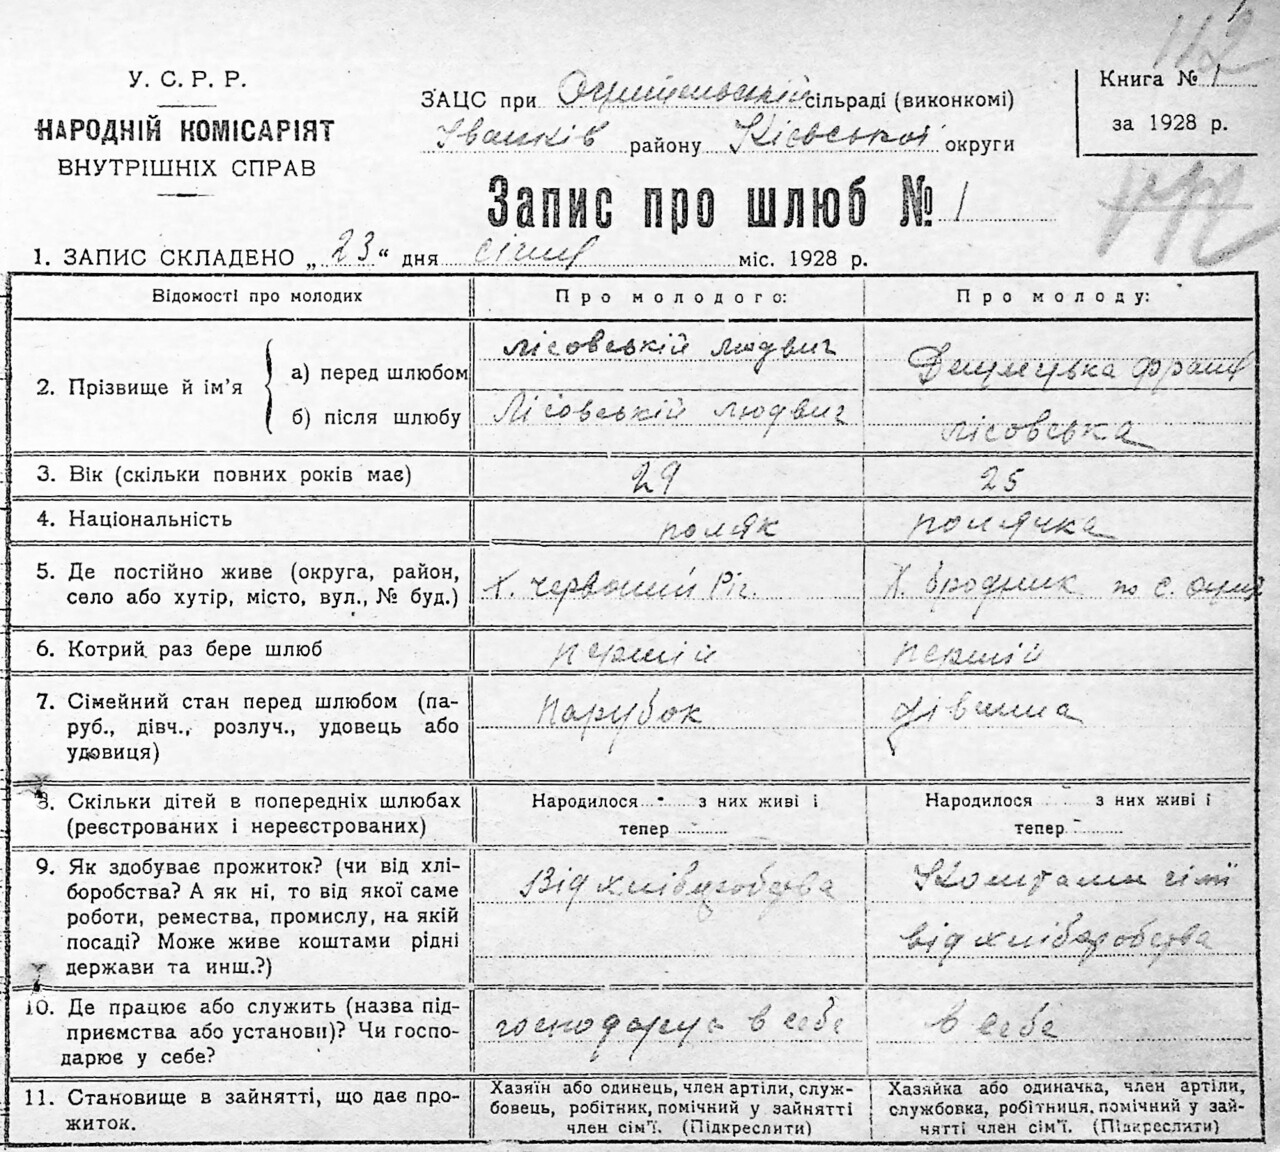 У. С. Р. Р.
НАРОДНІЙ КОМІСАРІЯТ
ВНУТРІШНІХ СПРАВ
ЗАЦС при сільраді (виконкомі)
Іванків району Кієвської округи
Книга № 1
за 1928 р.
112
Запис про шлюб № 1
1. ЗАПИС СКЛАДЕНО „ 23 “ дня січня міс. 1928 р.
Відомості про молодих
Про молодого:
Про молоду:
2. Прізвище й ім’я
а) перед шлюбом
лісовській людвиг
б) після шлюбу
Лісовській людвиг
лісовська
3. Вік (скільки повних років має)
29
25
4. Національність
поляк
полячка
5. Де постійно живе (округа, район,
село або хутір, місто, вул., № буд.)
Х. червоний Ріг.
Х. бродник по с.
6. Котрий раз бере шлюб
першій
першій
7. Сімейний стан перед шлюбом (па-
руб., дівч., розлуч., удовець або
удовиця)
парубок
дівчина
8. Скільки дітей в попередніх шлюбах
(реєстрованих і нереєстрованих)
Народилося з них живі і
тепер
Народилося з них живі і
тепер
9. Як здобуває прожиток? (чи від хлі-
боробства? А як ні, то від якої саме
роботи, ремества, промислу, на якій
посаді? Може живе коштами рідні
держави та инш.?)
Від хліворобства
Коштами сімї
від хліборобства
10. Де працює або служить (назва під-
приємства або установи)? Чи госпо-
дарює у себе?
господарує в себе
в себе
11. Становище в зайнятті, що дає про-
житок.
Хазяїн або одинець, член артіли, служ-
бовець, робітник, помічний у зайнятті
член сім’ї. (Підкреслити)
Хазяйка або одиначка, член артіли,
службовка, робітниця, помічний у зай-
нятті член сім’ї. (Підкреслити)